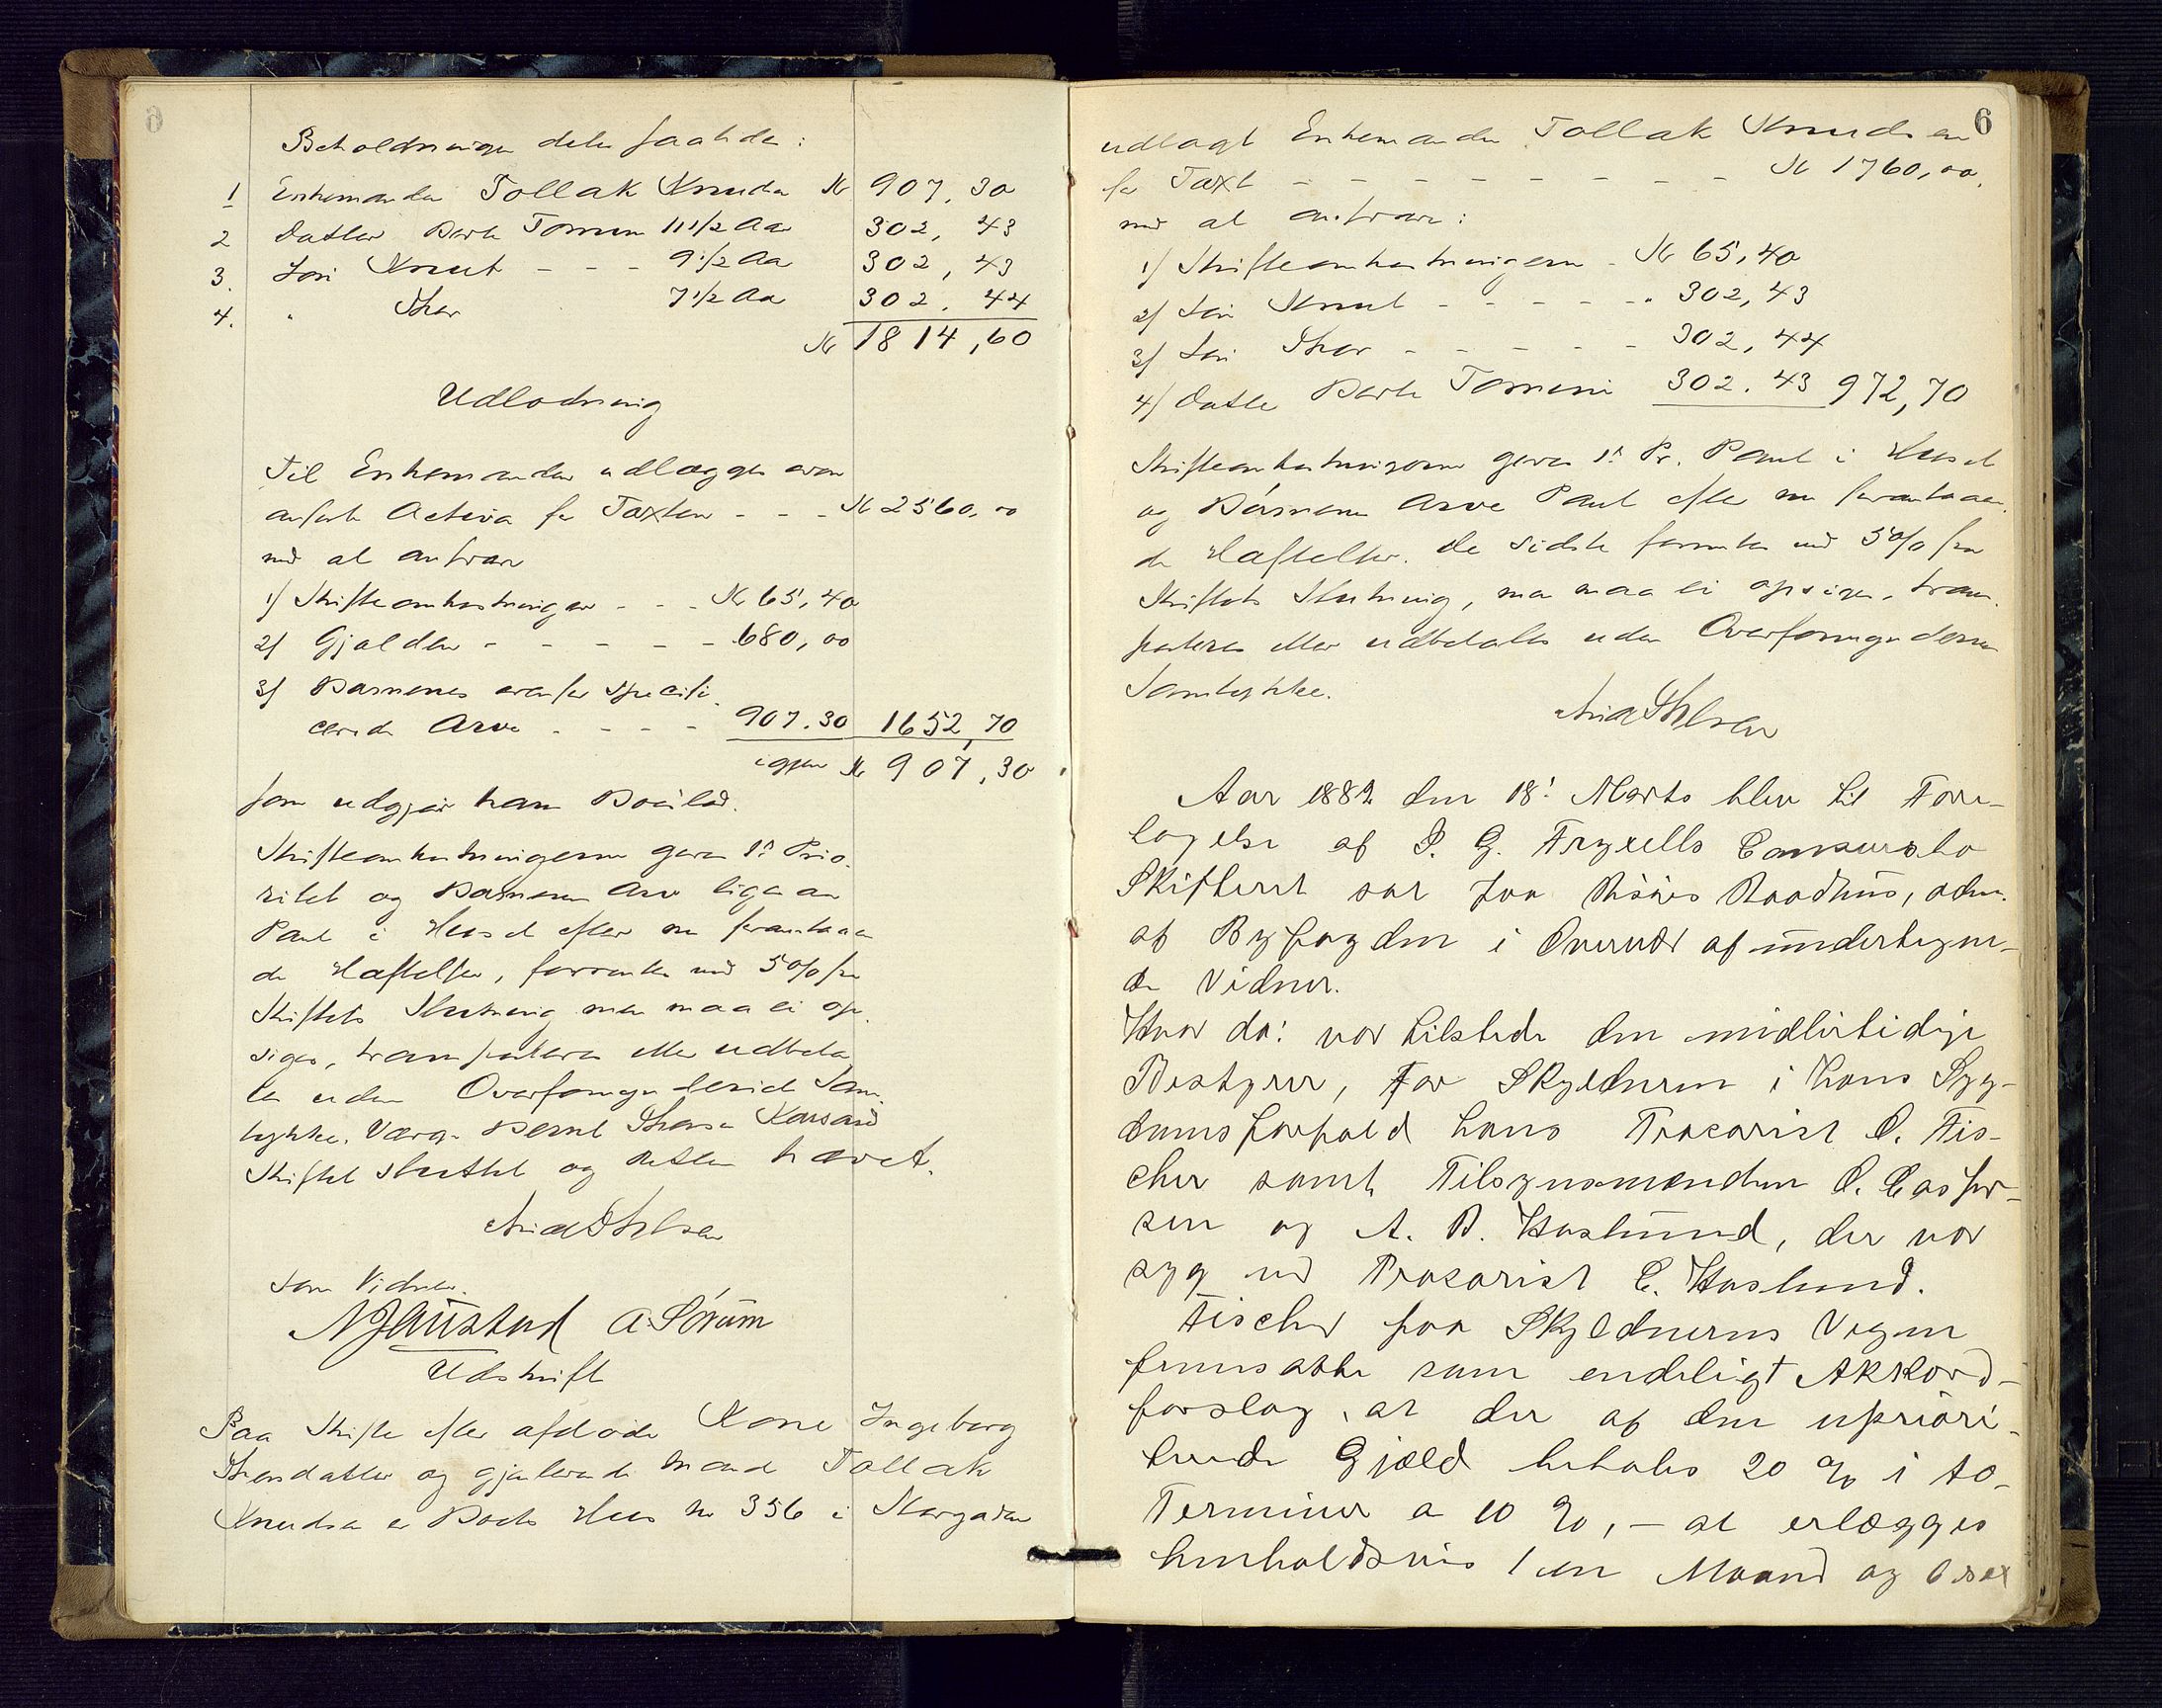 Beholdningen deles saaledes:
1 Enkemanden Tollak Knudsen Kr 907,30
2 Datter Berte Tomine 11 1/2 Aar 302,43
3. Søn Knut - - - 9 1/2 Aar 302,43
4. " Thor 7 1/2 Aar 302.44
Kr 1814,60
Udlodning
Til Enkemanden udlægges oven
anførte Activa for Taxten - - - Kr 2560,00
mod at ansvare
1) Skifteomkostninger - - - Kr 65,40
2) Gjælden - - - - - 680,00
3) Børnenes ovenfor specifi
cerede Arv - - - - 907.30 1652,70
igjen Kr 907,30
som udgjør hans Boeslod.
Skifteomkostningerne gives 1ste Prio-
ritet og Børnenes Arv ligesaa
Pant i Huset efter nu foranstaaen
de Hæftelser, forrentes med 5% fra
Skiftets Slutning men maa ei op-
siges, transporteres eller udbeta
les uden Overformynderiets Sam-
tykke. Værge Bernt
Skiftet sluttet og Retten hævet.
Som Vidner.
NJAustad A. Sørum
Udskrift
Paa Skifte efter afdøde Kone Ingeborg
Thorsdatter og gjenlevende Mand Tollak
Knudsen er Boets Hus No 356 i Storgaden
6
udlagt Enkemanden Tollak Knudsen
for Taxt - - - - - - - - - Kr 1760,00.
mod at ansvare:
1) Skifteomkostningerne - Kr 65,40
2) Søn Knut - - - - - " 302,43
3) Søn Thor - - - - - 302,44
4) Datter Berte Tomine 302.43 972,70
Skifteomkostningerne gives 1ste Pr. Pant i Huset
og Børnenes Arve Pant efter nu foranstaaen-
de Hæftelser. De sidste forrentes med 5% fra
Skiftets Slutning, men maa ei opsiges, trans-
porteres eller udbetales uden Overformynderiets
Samtykke.
Aar 1882 den 18de Marts blev til Fore-
tagelse af P. G. Fryxells Concursbo
Skifteret sat paa Risørs Raadhus, adm.
af Byfogden i Overvær af undertegne-
de Vidner.
Hvor da: var tilstede den midlertidige
Bestyrer, for Skyldneren i hans Syg-
domsforfald hans Procurist O. Fis-
cher samt Tilsynsmændene O. Casper-
sen og A. B. Haslund, der var
syg ved Procurist C. Haslund.
Fischer paa Skyldnerens Vegne
fremsatte som endeligt Akkord-
forslag, at der af den uprior i-
terede Gjæld betales 20 % i to
Terminer a 10 %, - at erlægges
henholdsvis 1 en Maaned og 6 sex